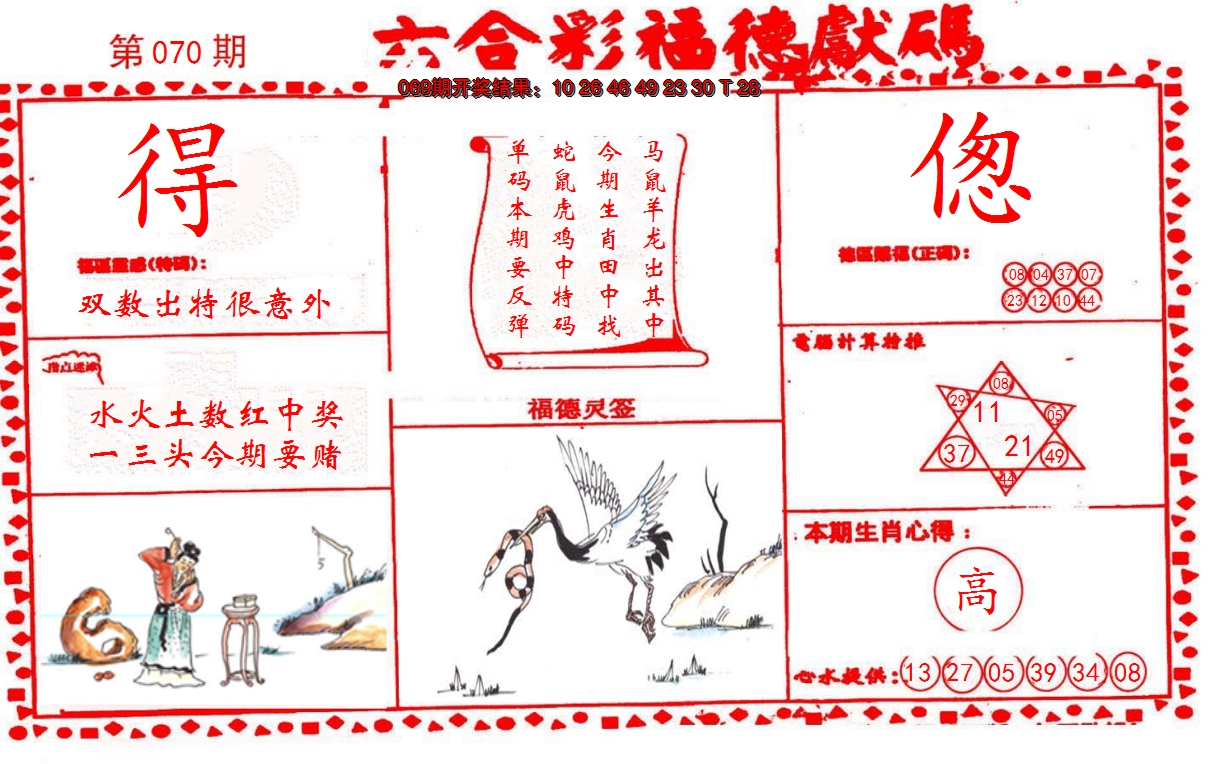 第070期
六合彩福德獻碼
069期开奖结果：10 26 46 49 23 30 T 28
得
福區靈感(特碼)：
双数出特很意外
指点迷津
水火土数红中奖
一三头今期要赌
马鼠羊龙出其中
今期生肖田中找
蛇鼠虎鸡中特码
单码本期要反弹
福德灵签
偬
德區賜福(正碼)：
08 04 37 07
23 12 10 44
電腦計算抢推
08
29 11 05
21
37 49
44
本期生肖心得：
高
心水提供：13 27 05 39 34 08